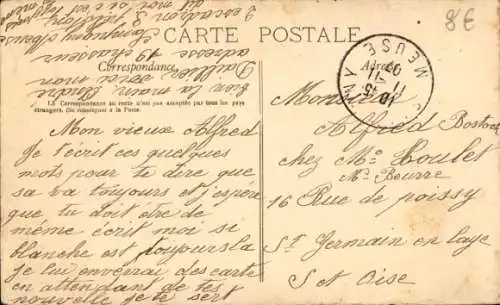 8€
CARTE POSTALE
Correspondance
Adresse
La Correspondance au recto n'est pas acceptée par tous les pays
étrangers. (Se renseigner à la Poste)
MEUSE
Mon vieux Alfred
Je t'écrit ces quelques
mots pour te dire que
sa va toujours et j'espère
que tu doit être de
même écrit moi si
blanche est toujours la
je lui enveprai des carte
en attendant de tes
nouvelle je te sert
la main André
voici mon
adresse 19 chasseur
Monsieur
Alfred Bostock
chez Mo Houlet
Mo Beurre
16 Rue de poissy
St Germain en Laye
S et Oise